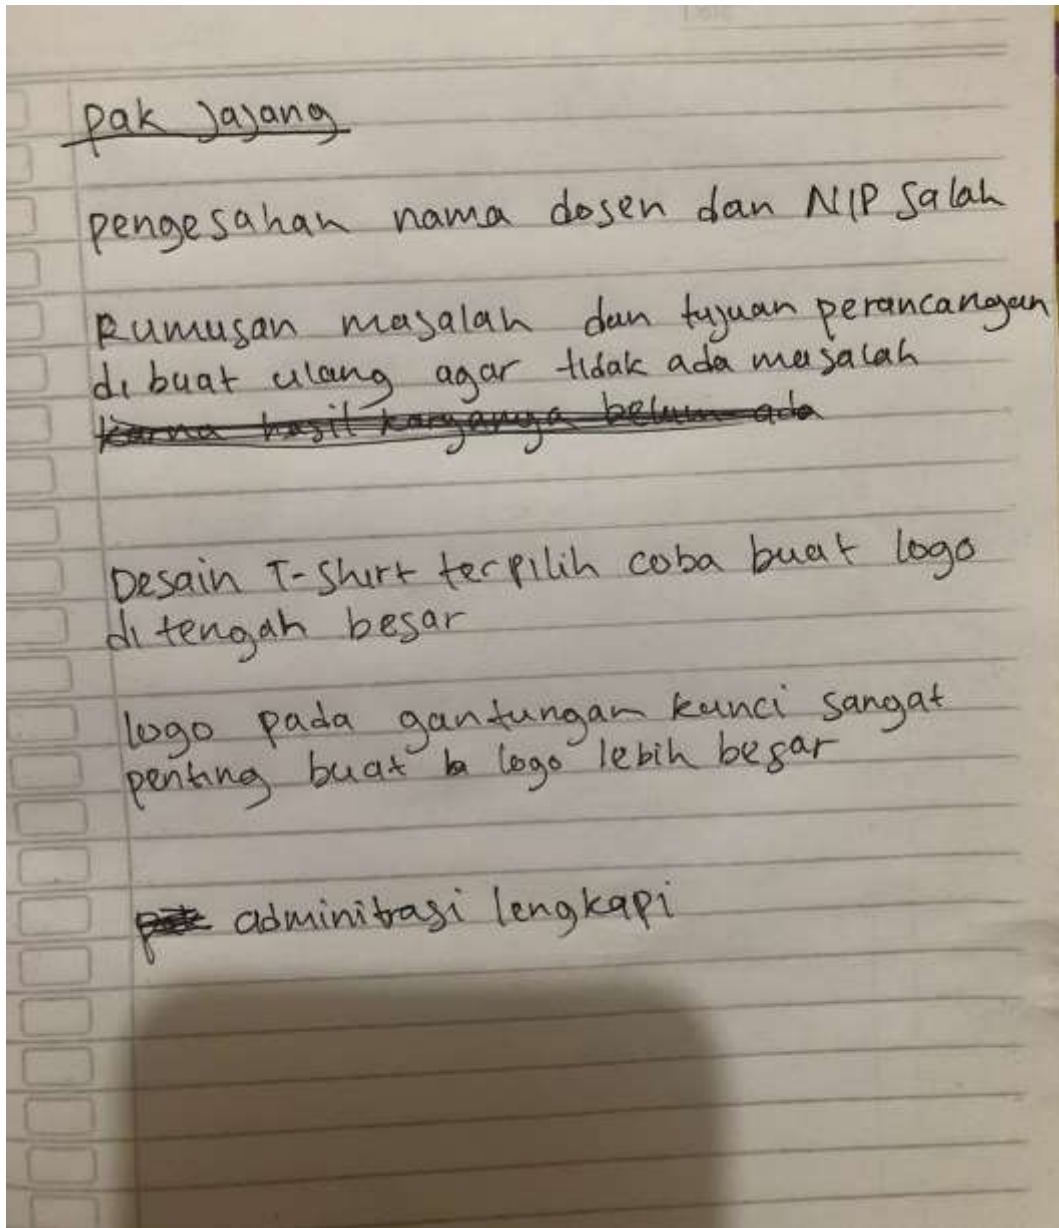 pak Jajang
pengesahan nama dosen dan NIP salah
Rumusan masalah dan tujuan perancangan
di buat ulang agar tidak ada masalah
karna hasil karyanya belum ada
Desain T-Shirt terpilih coba buat logo
di tengah besar
logo pada gantungan kunci sangat
penting buat logo lebih besar
adminitrasi lengkapi